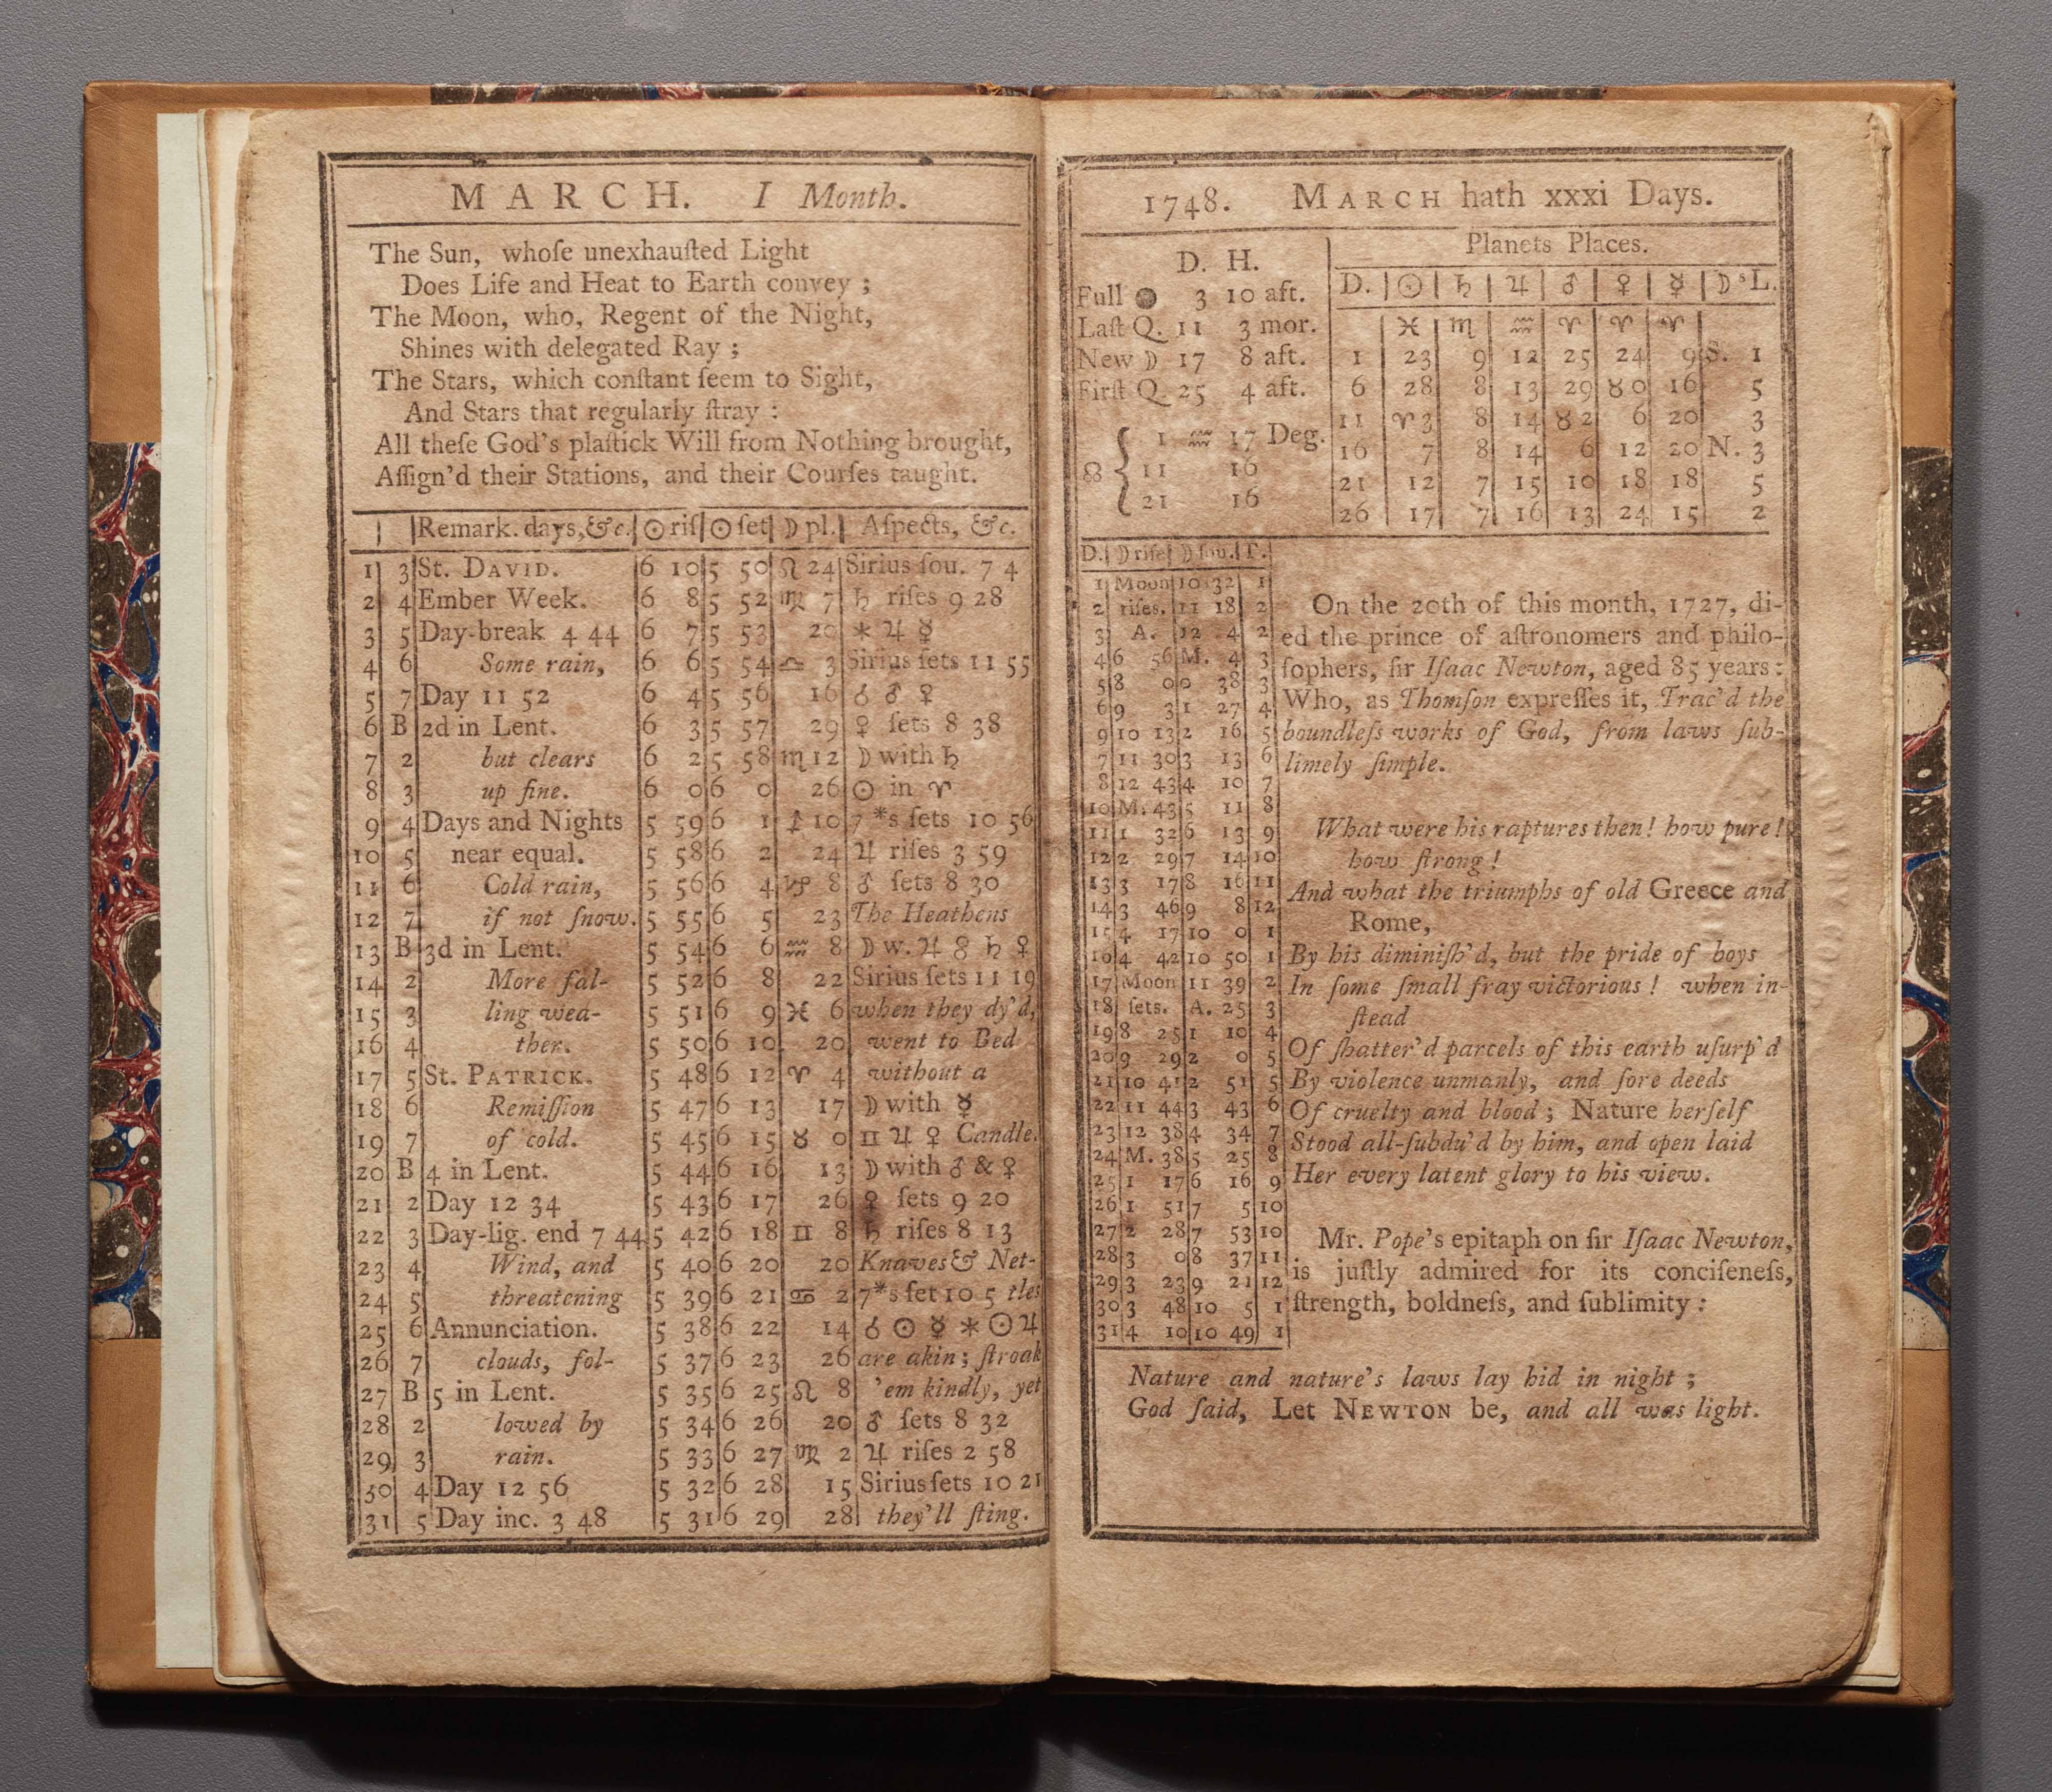 MARCH. I Month.
The Sun, whoſe unexhauſted Light
Does Life and Heat to Earth convey ;
The Moon, who, Regent of the Night,
Shines with delegated Ray ;
The Stars, which conſtant ſeem to Sight,
And Stars that regularly ſtray :
All theſe God's plaſtick Will from Nothing brought,
Aſſign'd their Stations, and their Courſes taught.
Remark. days,&c. ☉ riſ ☉ ſet ☽ pl. Aſpects, &c.
1 3 St. DAVID. 6 10 5 50 ♌ 24 Sirius ſou. 7 4
2 4 Ember Week. 6 8 5 52 ♍ 7 ♄ riſes 9 28
3 5 Day-break 4 44 6 7 5 53 20 ⚹ ♃ ☿
4 6 Some rain, 6 6 5 54 ♎ 3 Sirius ſets 11 55
5 7 Day 11 52 6 4 5 56 16 ☌ ♂ ♀
6 B 2d in Lent. 6 3 5 57 29 ♀ ſets 8 38
7 2 but clears 6 2 5 58 ♏ 12 ☽ with ♄
8 3 up fine. 6 0 6 0 26 ☉ in ♈
9 4 Days and Nights 5 59 6 1 ♐ 10 7 *s ſets 10 56
10 5 near equal. 5 58 6 2 24 ♃ riſes 3 59
11 6 Cold rain, 5 56 6 4 ♑ 8 ♂ ſets 8 30
12 7 if not ſnow. 5 55 6 5 23 The Heathens
13 B 3d in Lent. 5 54 6 6 ♒ 8 ☽ w. ♃ ☍ ♄ ♀
14 2 More fal- 5 52 6 8 22 Sirius ſets 11 19
15 3 ling wea- 5 51 6 9 ♓ 6 when they dy'd,
16 4 ther. 5 50 6 10 20 went to Bed
17 5 St. PATRICK. 5 48 6 12 ♈ 4 without a
18 6 Remiſſion 5 47 6 13 17 ☽ with ☿
19 7 of cold. 5 45 6 15 ♉ 0 ♊ ♃ ♀ Candle.
20 B 4 in Lent. 5 44 6 16 13 ☽ with ♂ & ♀
21 2 Day 12 34 5 43 6 17 26 ♀ ſets 9 20
22 3 Day-lig. end 7 44 5 42 6 18 ♊ 8 ♄ riſes 8 13
23 4 Wind, and 5 40 6 20 20 Knaves & Net-
24 5 threatening 5 39 6 21 ♋ 2 7*s ſet 10 5 tles
25 6 Annunciation. 5 38 6 22 14 ☌ ☉ ☿ ⚹ ☉ ♃
26 7 clouds, fol- 5 37 6 23 26 are akin; ſtroak
27 B 5 in Lent. 5 35 6 25 ♌ 8 'em kindly, yet
28 2 lowed by 5 34 6 26 20 ♂ ſets 8 32
29 3 rain. 5 33 6 27 ♍ 2 ♃ riſes 2 58
30 4 Day 12 56 5 32 6 28 15 Sirius ſets 10 21
31 5 Day inc. 3 48 5 31 6 29 28 they'll ſting.
1748. MARCH hath xxxi Days.
D. H.
Full ● 3 10 aft.
Laſt Q. 11 3 mor.
New ☽ 17 8 aft.
Firſt Q. 25 4 aft.
☊ { 1 ♒ 17 Deg.
11 16
21 16
Planets Places.
D. ☉ ♄ ♃ ♂ ♀ ☿ ☽'s L.
♓ ♏ ♒ ♈ ♈ ♈
1 23 9 12 25 24 9 S. 1
6 28 8 13 29 ♉ 0 16 5
11 ♈ 3 8 14 ♉ 2 6 20 3
16 7 8 14 6 12 20 N. 3
21 12 7 15 10 18 18 5
26 17 7 16 13 24 15 2
D. ☽ riſe ☽ ſou. T.
1 Moon 10 32 1
2 riſes. 11 18 2
3 A. 12 4 2
4 6 56 M. 4 3
5 8 0 0 38 3
6 9 3 1 27 4
9 10 13 2 16 5
7 11 30 3 13 6
8 12 43 4 10 7
10 M. 43 5 11 8
11 1 32 6 13 9
12 2 29 7 14 10
13 3 17 8 16 11
14 3 46 9 8 12
15 4 17 10 0 1
16 4 42 10 50 1
17 Moon 11 39 2
18 ſets. A. 25 3
19 8 25 1 10 4
20 9 29 2 0 5
21 10 41 2 51 5
22 11 44 3 43 6
23 12 38 4 34 7
24 M. 38 5 25 8
25 1 17 6 16 9
26 1 51 7 5 10
27 2 28 7 53 10
28 3 0 8 37 11
29 3 23 9 21 12
30 3 48 10 5 1
31 4 10 10 49 1
On the 20th of this month, 1727, di-
ed the prince of aſtronomers and philo-
ſophers, ſir Iſaac Newton, aged 85 years:
Who, as Thomſon expreſſes it, Trac'd the
boundleſs works of God, from laws ſub-
limely ſimple.
What were his raptures then! how pure!
how ſtrong!
And what the triumphs of old Greece and
Rome,
By his diminiſh'd, but the pride of boys
In ſome ſmall fray victorious! when in-
ſtead
Of ſhatter'd parcels of this earth uſurp'd
By violence unmanly, and ſore deeds
Of cruelty and blood; Nature herſelf
Stood all-ſubdu'd by him, and open laid
Her every latent glory to his view.
Mr. Pope's epitaph on ſir Iſaac Newton,
is juſtly admired for its conciſeneſs,
ſtrength, boldneſs, and ſublimity :
Nature and nature's laws lay hid in night ;
God ſaid, Let NEWTON be, and all was light.